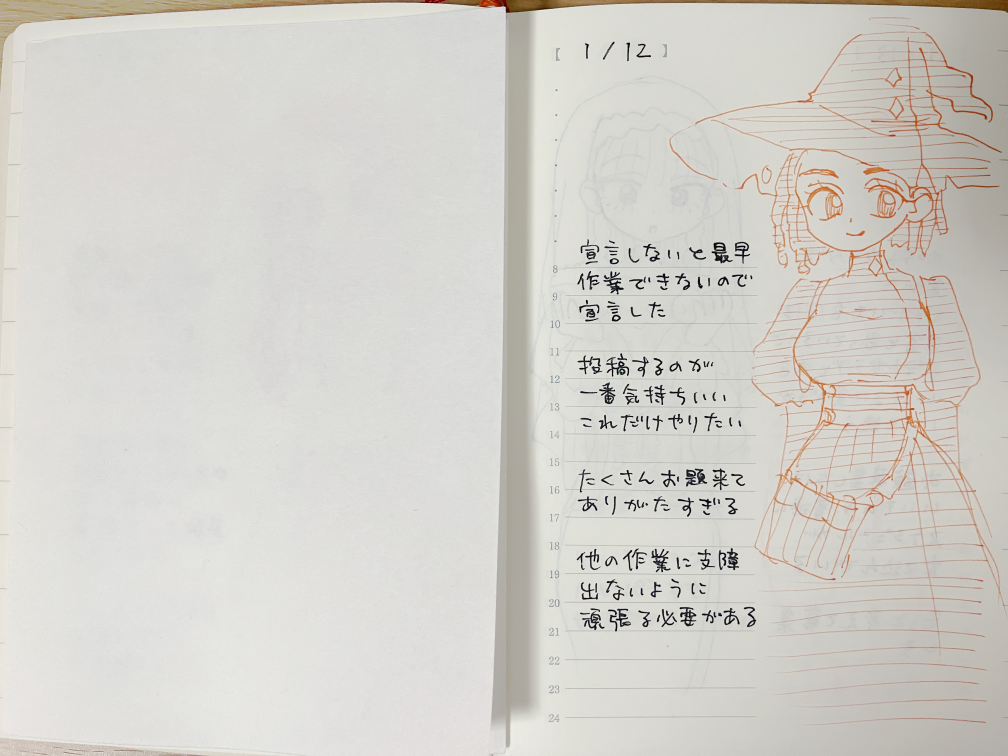 [ 1/12 ]
宣言しないと最早
作業できないので
宣言した
投稿するのが
一番気持ちいい
これだけやりたい
たくさんお題来て
ありがたすぎる
他の作業に支障
出ないように
頑張る必要がある
8
9
10
11
12
13
14
15
16
17
18
19
20
21
22
23
24